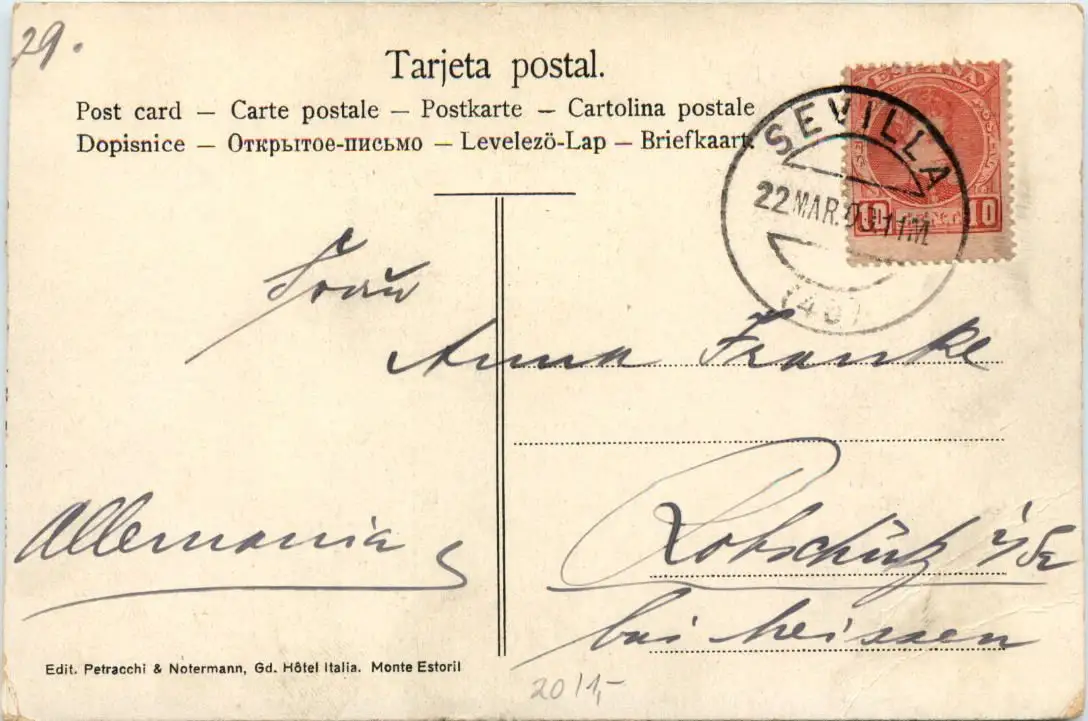 29.
Tarjeta postal.
Post card – Carte postale – Postkarte – Cartolina postale
Dopisnice – Открытое-письмо – Levelezö-Lap – Briefkaart
ESPAÑA
10 10
SEVILLA
22 MAR. 11M
Frau
Anna Franke
Allemania
Robschütz
bei Meissen
Edit. Petracchi & Notermann, Gd. Hôtel Italia. Monte Estoril
20/1,-